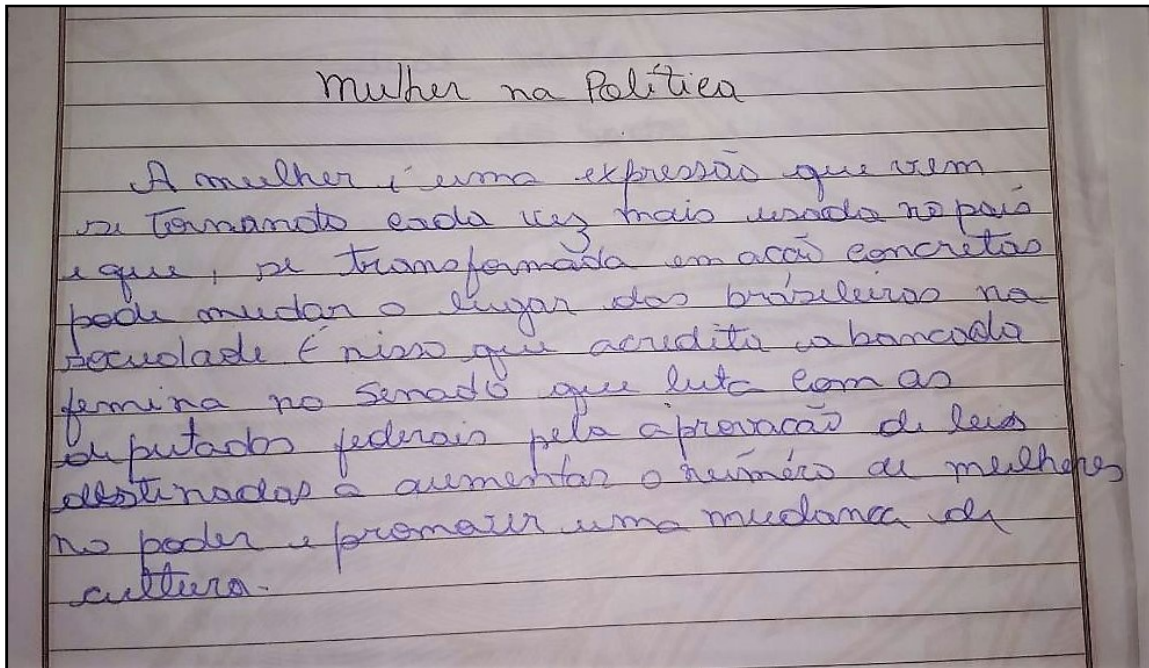 Mulher na Política
A mulher é uma expressão que vem
se tornando cada vez mais usada no país
e que, se transformada em acão concretas
pode mudar o lugar das brasileiras na
sociedade É nisso que acredita a bancada
femina no Senado que luta com as
deputados federais pela aprovacão de leis
destinadas a aumentar o número de mulheres
no poder e promover uma mudanca de
cultura.